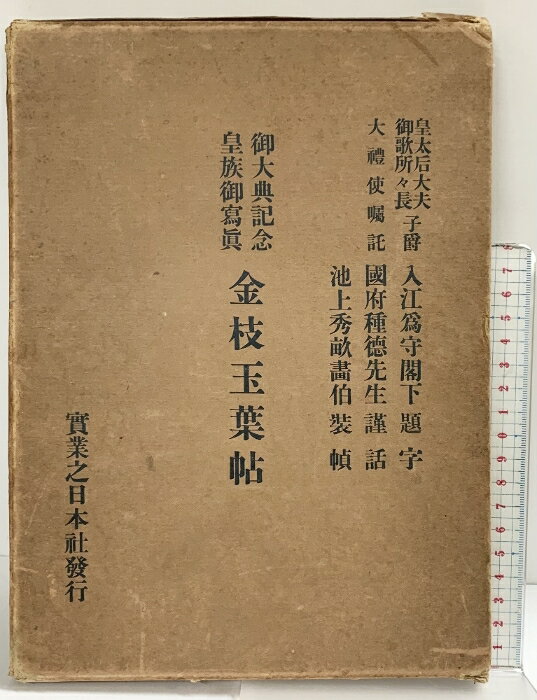 皇太后大夫
御歌所々長 子爵 入江爲守閣下 題字
大禮使囑託 國府種德先生 謹話
池上秀畝畵伯 裝幀
御大典記念
皇族御寫眞
金枝玉葉帖
實業之日本社發行